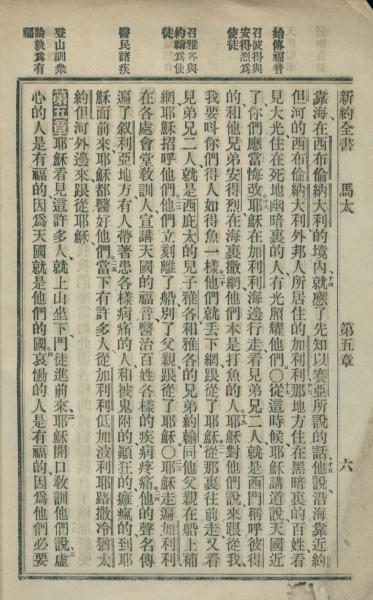 新約全書 馬太 第五章 六
始傳福音
召彼得與
安得烈爲
使徒
召雅各與
約翰爲使
徒
醫民諸疾
登山訓衆
論孰爲有
福
靠海在西布倫納大利的境內就應了先知以賽亞所說的話他說沿海靠近約
但河的西布倫納大利外邦人所居住的加利利那地方住在黑暗裏的百姓看
見大光住在死地幽暗裏的人有光照耀他們〇從這時候耶穌講道說天國近
了你們應當悔改耶穌在加利利海邊行走看見弟兄二人就是西門稱呼彼得
的和他兄弟安得烈在海裏撒網他們本是打魚的人耶穌對他們說來跟從我
我要呌你們得人如得魚一樣他們就丟下網跟從了耶穌從那裏往前走又看
見弟兄二人就是西庇太的兒子雅各和雅各的兄弟約翰同他父親在船上補
網耶穌招呼他們他們立刻離了船別了父親跟從了耶穌〇耶穌走遍加利利
在各處會堂敎訓人宣講天國的福音醫治百姓各樣的疾病疼痛他的聲名傳
遍了叙利亞地方有人帶著患各樣病痛的人和被鬼附的癲狂的癱瘋的到耶
穌面前來耶穌都醫好他們當下有許多人從加利利低加波利耶路撒冷猶太
約但河外邊來跟從耶穌
第五章耶穌看見這許多人就上山坐下門徒進前來耶穌開口敎訓他們說虛
心的人是有福的因爲天國就是他們的國哀慟的人是有福的因爲他們必要